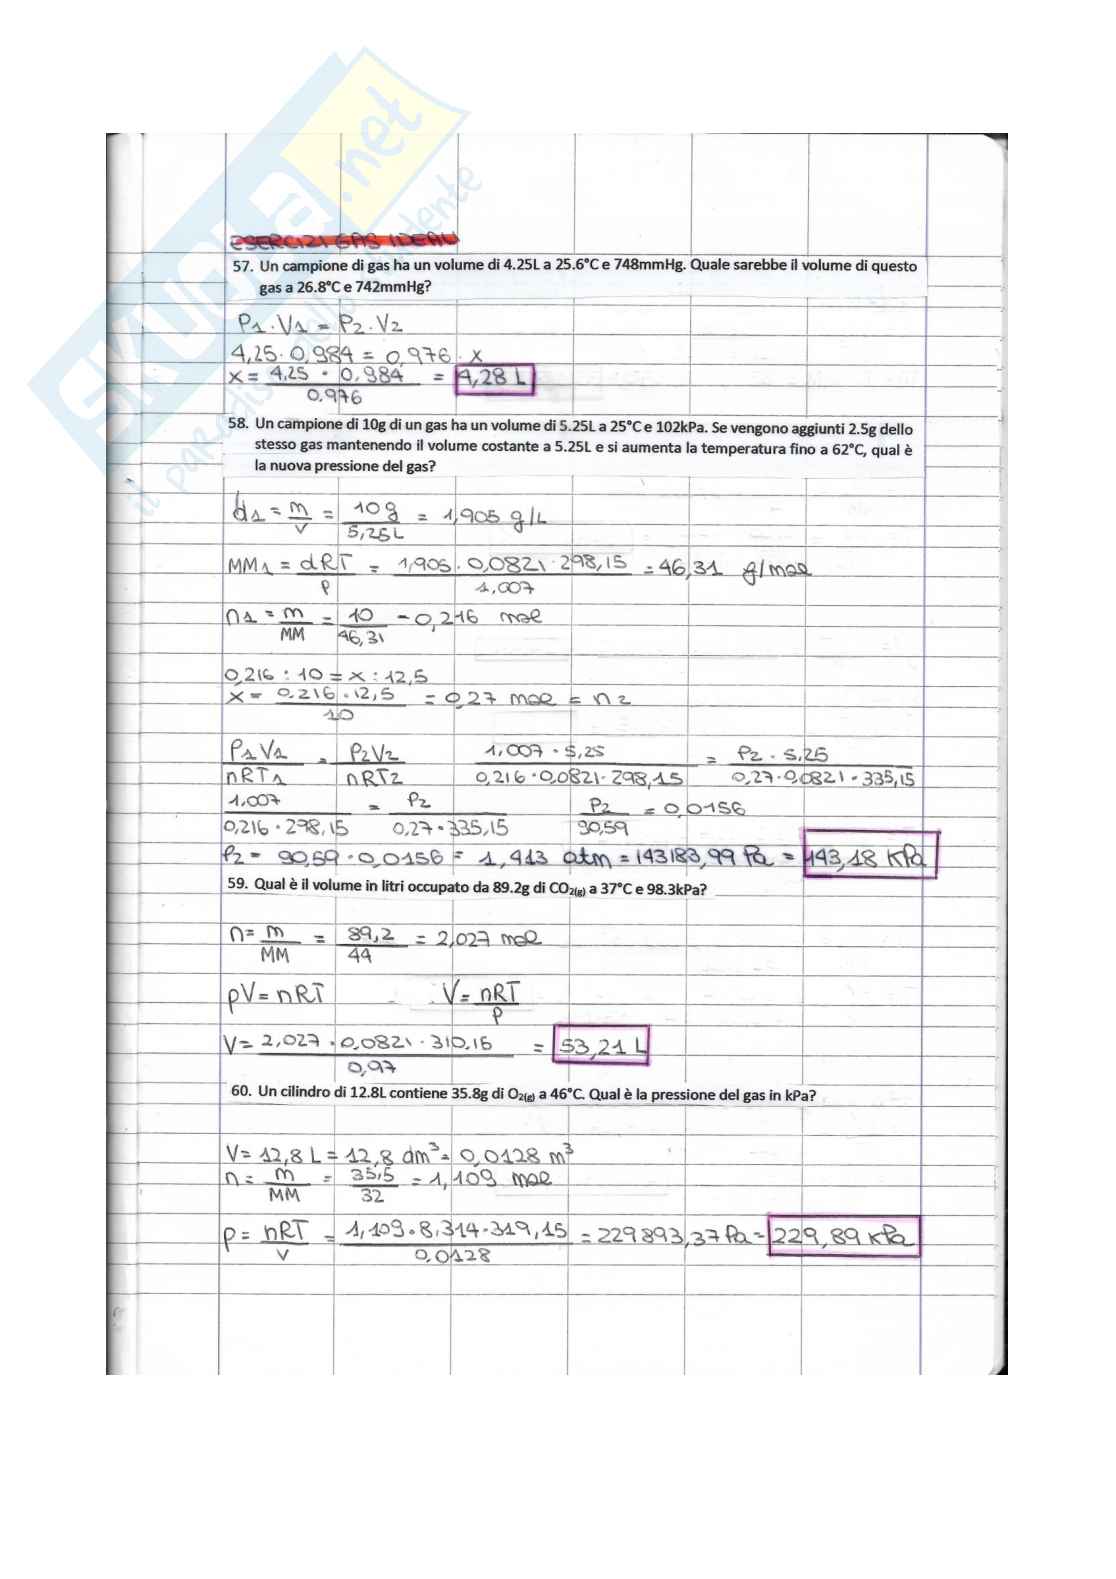 SKUOLA.net
il paradiso dello studente
ESERCIZI GAS IDEALI
57. Un campione di gas ha un volume di 4.25L a 25.6°C e 748mmHg. Quale sarebbe il volume di questo
gas a 26.8°C e 742mmHg?
P₁·V₁ = P₂·V₂
4,25·0,984 = 0,976·x
x = 4,25 · 0,984 / 0,976 = 4,28 L
58. Un campione di 10g di un gas ha un volume di 5.25L a 25°C e 102kPa. Se vengono aggiunti 2.5g dello
stesso gas mantenendo il volume costante a 5.25L e si aumenta la temperatura fino a 62°C, qual è
la nuova pressione del gas?
d₁ = m/V = 10g / 5,25L = 1,905 g/L
MM₁ = dRT/P = 1,905 · 0,0821 · 298,15 / 1,007 = 46,31 g/mol
n₁ = m/MM = 10/46,31 = 0,216 mol
0,216 : 10 = x : 12,5
x = 0,216 · 12,5 / 10 = 0,27 mol = n₂
P₁V₁/nRT₁ = P₂V₂/nRT₂ 1,007 · 5,25 / 0,216·0,0821·298,15 = P₂ · 5,25 / 0,27·0,0821·335,15
1,007 / 0,216·298,15 = P₂ / 0,27·335,15 P₂/90,59 = 0,0156
P₂ = 90,59 · 0,0156 = 1,413 atm = 143183,99 Pa = 143,18 KPa
59. Qual è il volume in litri occupato da 89.2g di CO₂(g) a 37°C e 98.3kPa?
n = m/MM = 89,2/44 = 2,027 mol
pV = nRT V = nRT/P
V = 2,027 · 0,0821 · 310,15 / 0,97 = 53,21 L
60. Un cilindro di 12.8L contiene 35.8g di O₂(g) a 46°C. Qual è la pressione del gas in kPa?
V = 12,8 L = 12,8 dm³ = 0,0128 m³
n = m/MM = 35,5/32 = 1,109 mol
p = nRT/V = 1,109·8,314·319,15 / 0,0128 = 229893,37 Pa = 229,89 kPa